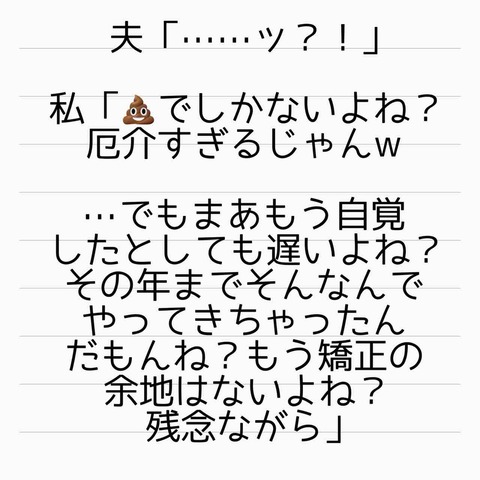 夫「……ッ？！」
私「💩でしかないよね？
厄介すぎるじゃんw
…でもまあもう自覚
したとしても遅いよね？
その年までそんなんで
やってきちゃったん
だもんね？もう矯正の
余地はないよね？
残念ながら」